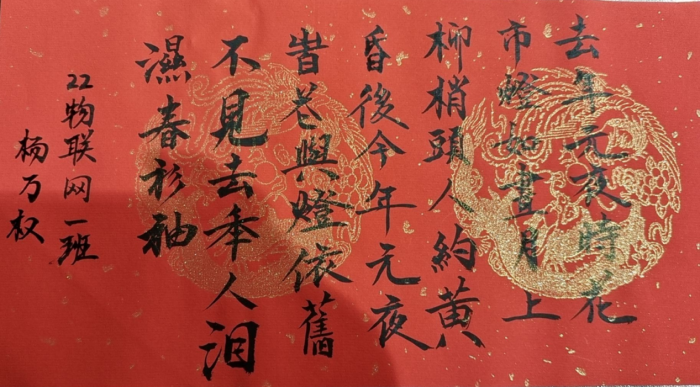 去年元夜時花
市燈如晝月上
柳梢頭人約黃
昏後今年元夜
旹花與燈依舊
不見去秊人泪
濕春衫袖
22物联网一班
杨万权